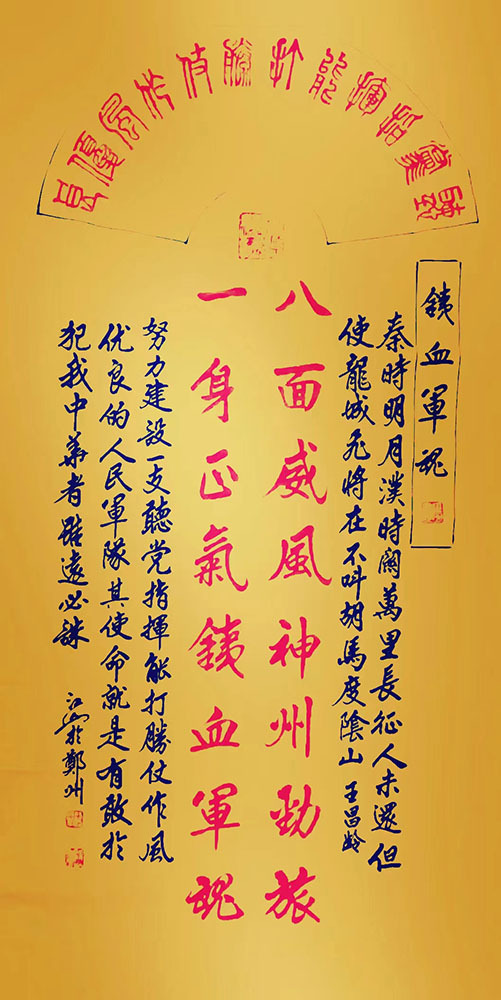 聽黨指揮能打勝仗作風優良
銕血軍魂
秦時明月漢時關萬里長征人未還但
使龍城飛將在不叫胡馬度陰山 王昌齡
八面威風神州勁旅
一身正氣銕血軍魂
努力建設一支聽党指揮能打勝仗作風
优良的人民軍隊其使命就是有敢於
犯我中華者雖遠必誅
江 於鄭州